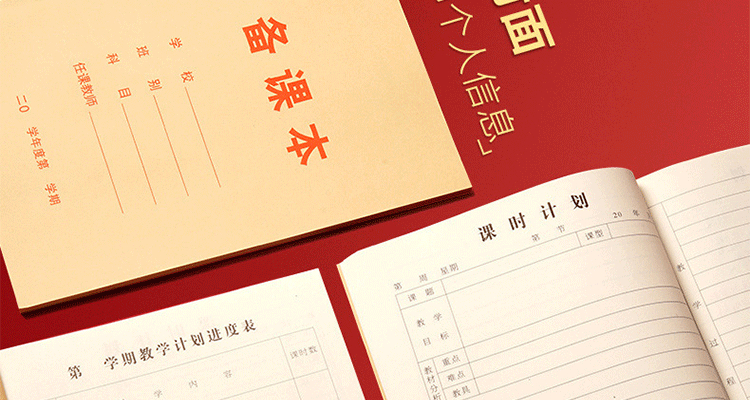 备课本
学校
班别
科目
任课教师
二〇 学年度第 学期
面
个人信息」
课时计划
20 年
第 周 星期 第 节 课型
课题
教学
目标
教材分析
重点
难点
教具
教学过程
第 学期教学计划进度表
学内容
课时数